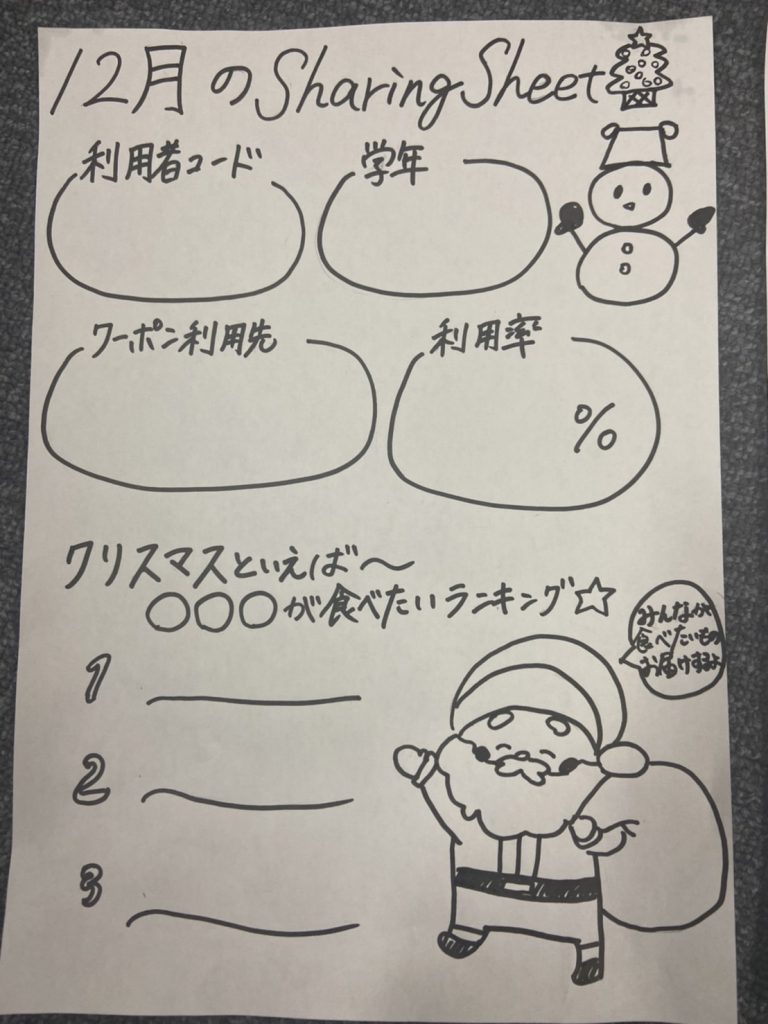 12月のSharing Sheet
利用者コード
学年
クーポン利用先
利用率
%
クリスマスといえば〜
○○○が食べたいランキング☆
みんなが
食べたいもの
お届けするよ
1
2
3